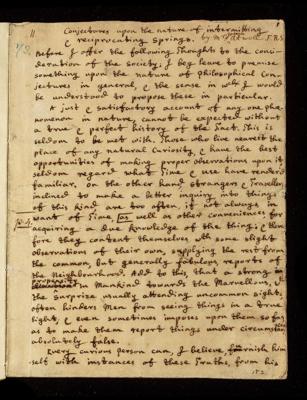 Conjectures upon the nature of intermitting
& reciprocating Springs. by Mr Atwell F.R.S.
Before I offer the following Thoughts to the consi-
deration of the Society, I beg leave to premise
something upon the nature of Philosophical Con-
jectures in general, & the sense in wch I would
be understood to propose these in particular.
A just & satisfactory account of any one phæ-
nomenon in nature, cannot be expected without
a true & perfect history of the Fact. This is
seldom to be met with. Those who live nearest the
place of any natural Curiosity, & have the best
opportunities of making proper observations upon it,
seldom regard what Time & use have rendered
familiar. On the other hand strangers & Travellers,
inclined to make a better inquiry into things
of this kind are too often, if not always in
want of Time, as well as other conveniences for
acquiring a due Knowledge of the things; & there-
fore they content themselves wth some slight
observations of their own, supplying the rest from
the common, but generally fabulous, reports of
the Neighbourhood. Add to this, that a strong
propensity in Mankind towards the Marvellous, &
the surprize usually attending uncommon sights,
often hinders Men from seeing things in a true
light, & even sometimes imposes upon them so far,
as to make them report things under circumstances
absolutely false.
Every curious person can, I believe, furnish him
self with instances of these Truths, from his